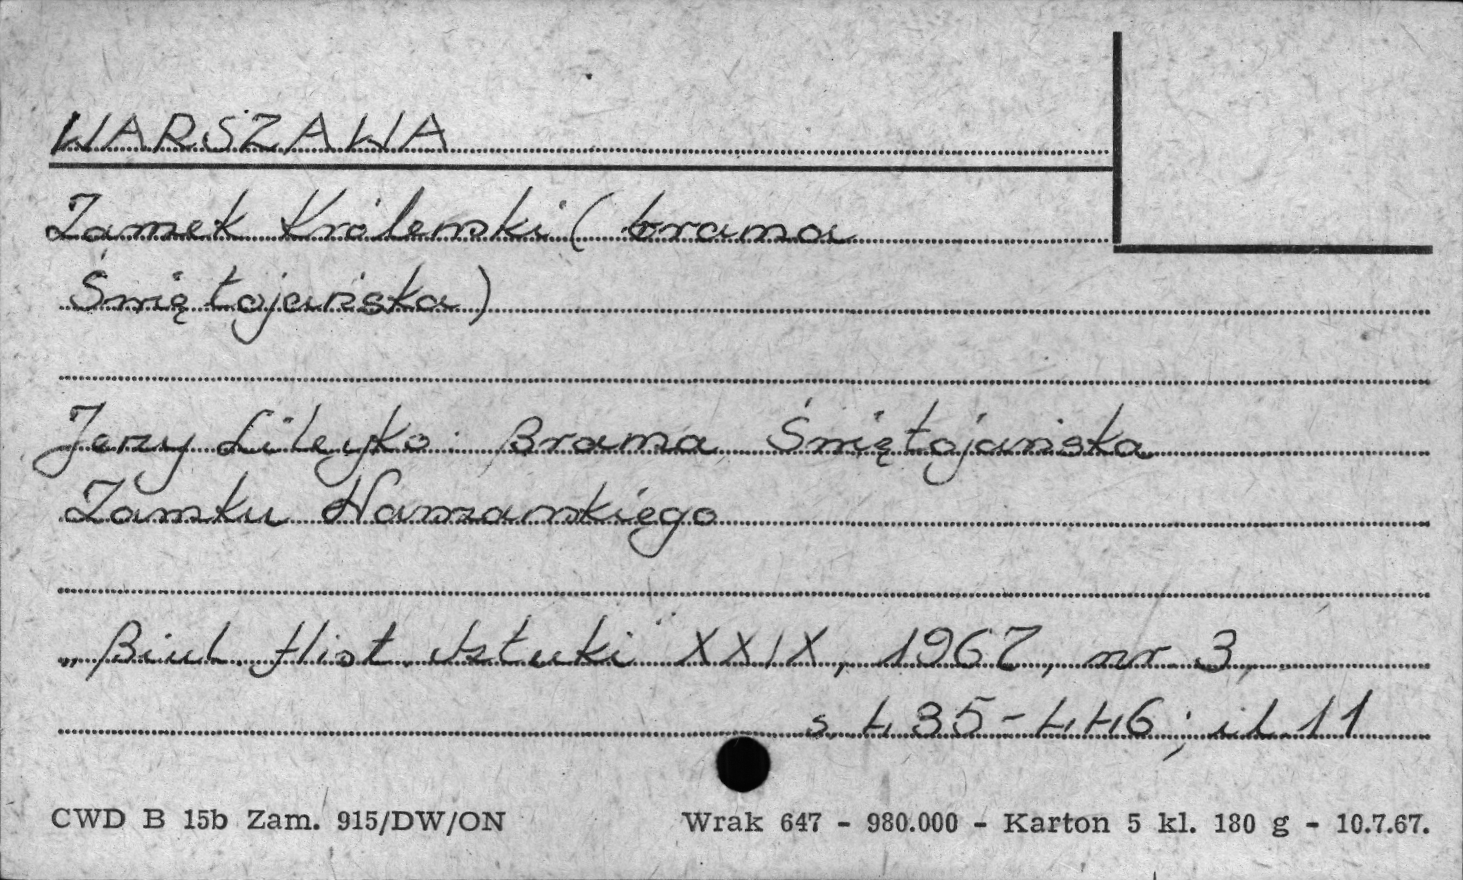 WARSZAWA
Zamek Królewski (brama
Świętojańska)
Jerzy Lileyko: Brama Świętojańska
Zamku Warszawskiego
„Biul. Hist. Sztuki" XXIX, 1967, nr 3,
s. 435-446; il. 11
CWD B 15b Zam. 915/DW/ON Wrak 647 - 980.000 - Karton 5 kl. 180 g - 10.7.67.